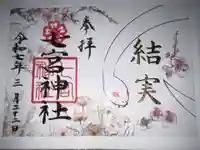 奉拝
七宮神社
令和七年三月二十二日
結実